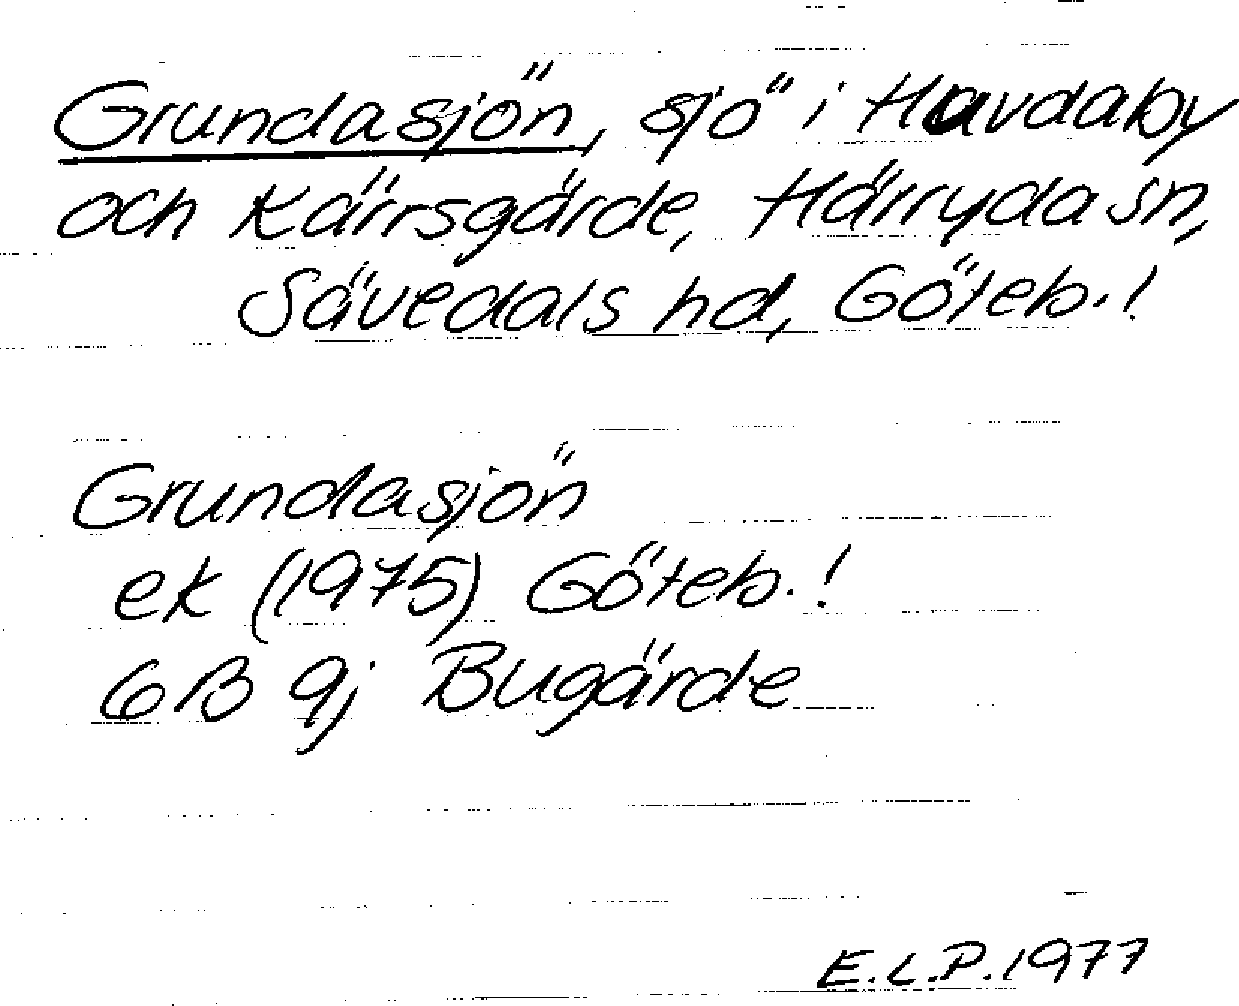 Grundasjön, sjö i Havdaby
och Kärrsgärde, Härryda sn,
Sävedals hd, Göteb.!
Grundasjön
ek (1975) Göteb.!
6B 9j Bugärde
E.L.P. 1977